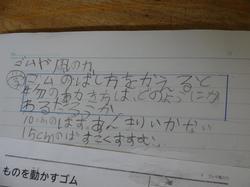 ゴムや風の力
学 ゴムのばし方をかえると
物のあごき方は、どのようにか
あるだろうか
10cmのばす。あんまりいかない
15cmのばすすごくすすむ。
ものを動かすゴム